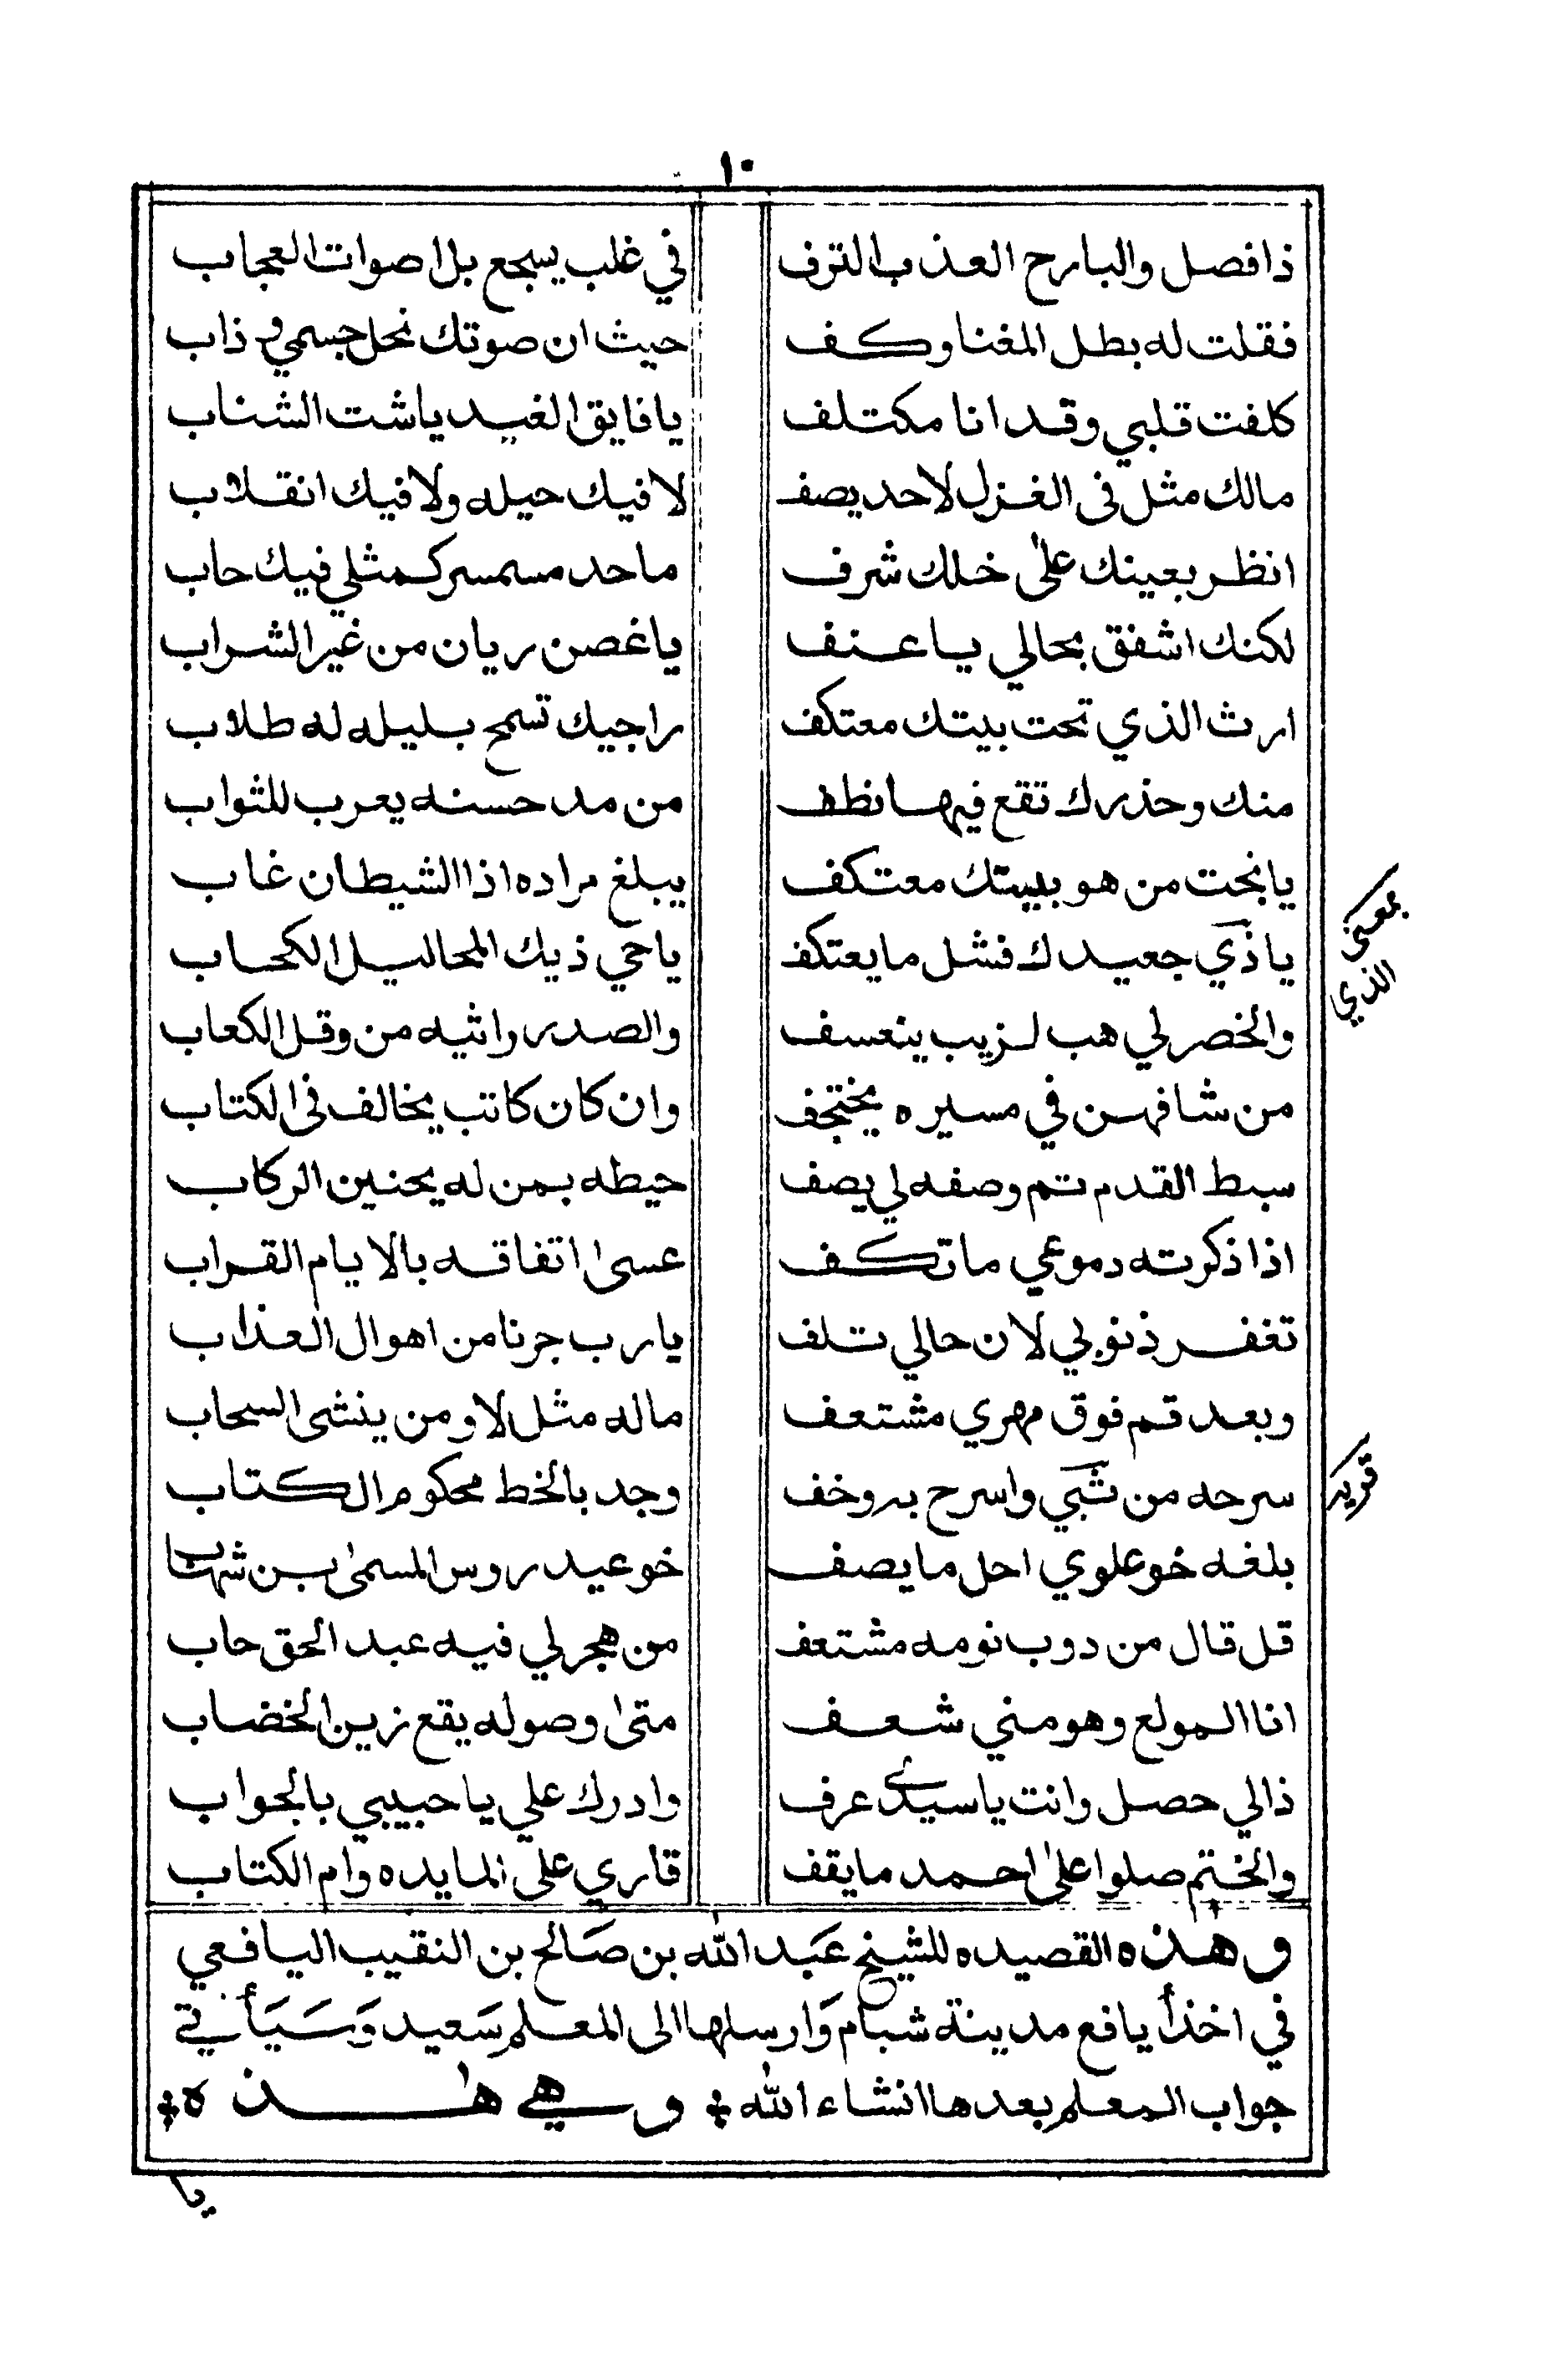 ١٠
ذا فصل والبارح العذب الترف في غلب يسجع بل اصوات العجاب
فقلت له بطل المغنا وكف حيث ان صوتك نحل جسمي وذاب
كلفت قلبي وقد انا مكتلف يا فايق الغيد يا شت الشناب
مالك مثل في الغزل لاحد يصف لا فيك حيله ولا فيك انقلاب
انظر بعينك على خلك شرف ما حد مسمسر كمثلي فيك حاب
لكنك اشفق بحالي يا عنف يا غصن ريان من غير الشراب
ارث الذي تحت بيتك معتكف راجيك تسمح بليله له طلاب
منك وحذرك تقع فيها نطف من مد حسنه يعرب للثواب
يا بخت من هو ببيتك معتكف يبلغ مراده اذا الشيطان غاب
يا ذي جعيدك فشل ما يعتكف يا حي ذيك المحاليل الكحاب
بمعنى الذي
والخصر لي هب لزيب ينعسف والصدر واثيه من وقل الكعاب
من شافهن في مسيره يختجف وان كان كاتب يخالف في الكتاب
سبط القدم تم وصفه لي يصف حيطه بمن له يحنين الركاب
اذا ذكرته دموعي ما تكف عسى اتفاقه بالايام القراب
تغفر ذنوبي لان حالي تلف يارب جرنا من اهوال العذاب
وبعد قم فوق مهري مشتعف ماله مثل لا ومن ينشي السحاب
سرحه من ثبي واسرح به وخف وجد بالخط محكوم الكتاب
بلغه خو علوي احل ما يصف خو عيدروس المسمى بن شهاب
قل قال من دوب نومه مشتعف من هجر لي فيه عبد الحق حاب
انا المولع وهو مني شعف متى وصوله يقع زين الخضاب
ذا لي حصل وانت يا سيدي عرف وادرك علي يا حبيبي بالجواب
والختم صلوا على احمد ما يقف قاري على المايده وام الكتاب
وهذه القصيده للشيخ عبد الله بن صالح بن النقيب اليافعي
في اخذ يافع مدينة شبام وارسلها الى المعلم سعيد وسيأتي
جواب المعلم بعدها انشاء الله * وهي هذه *
يا